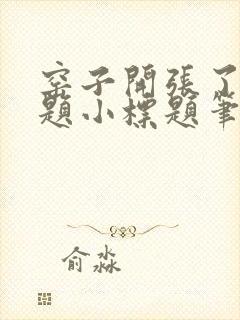 窑子開張了
題小標題筆
俞淼